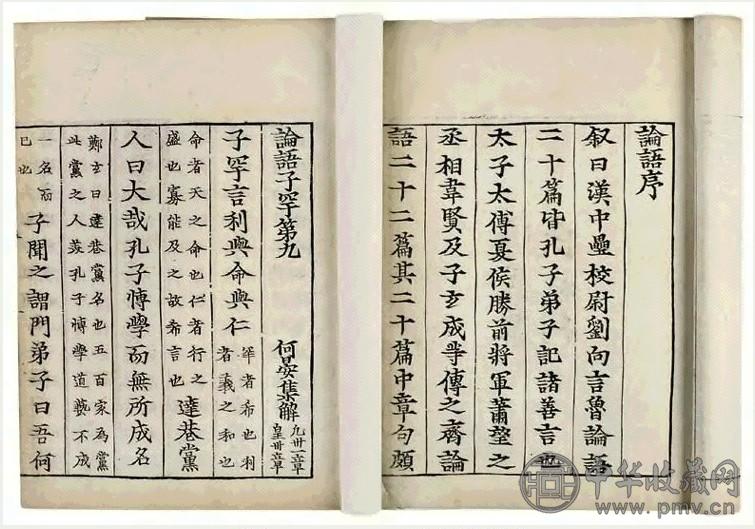 論語序
叙曰漢中壘校尉劉向言魯論語
二十篇皆孔子弟子記諸善言也
太子太傅夏侯勝前將軍蕭望之
丞相韋賢及子玄成等傳之齊論
語二十二篇其二十篇中章句頗
論語子罕第九 何晏集解 凡卅一章 皇卅章
子罕言利與命與仁 罕者希也利者義之和也
命者天之命也仁者行之盛也寡能及之故希言也 達巷黨
人曰大哉孔子博學而無所成名
鄭玄曰達巷黨名也五百家為黨此黨之人美孔子博學道藝不成
一名而已也 子聞之謂門弟子曰吾何
中华收藏网
www.pmv.cn